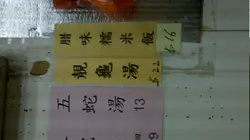 腊味糯米飯
$16
靚龜湯
$22
五蛇湯
13
9